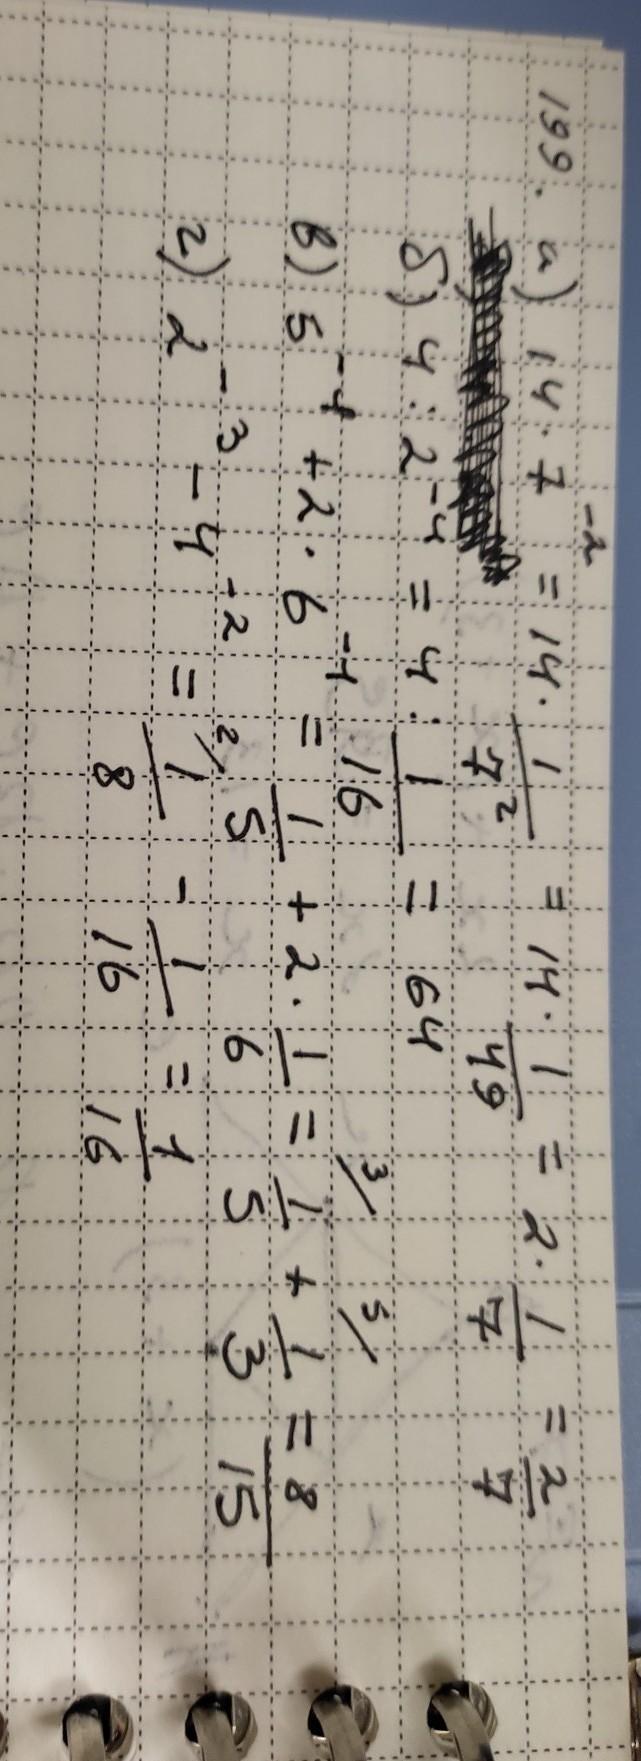 199. а) 14 · 7^-2 = 14 · 1/7^2 = 14 · 1/49 = 2 · 1/7 = 2/7
б) 4 : 2^-4 = 4 : 1/16 = 64
в) 5^-1 + 2 · 6^-1 = 1/5 + 2 · 1/6 = 3/ 1/5 + 5/ 1/3 = 8/15
г) 2^-3 - 4^-2 = 2/ 1/8 - 1/16 = 1/16